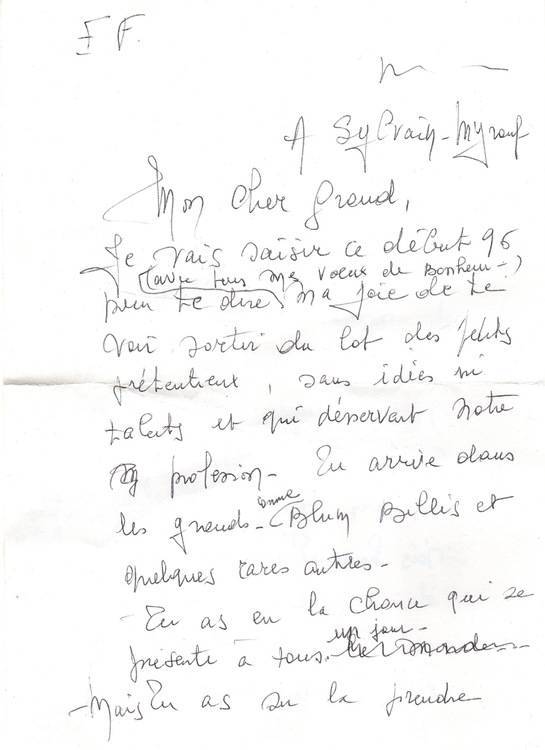 F F.
A Sylvain-Myrouf
Mon cher Grand,
Je vais saisir ce début 96
(avec tous mes voeux de Bonheur-)
pour te dire ma joie de te
voir sortir du lot des petits
prétentieux, sans idées ni
talents et qui desservent notre
profession - Tu arrive dans
les grands - comme (Blum Bellis et
quelques rares autres -
- Tu as eu la chance qui se
présente à tous un jour -
- Mais Tu as su la prendre